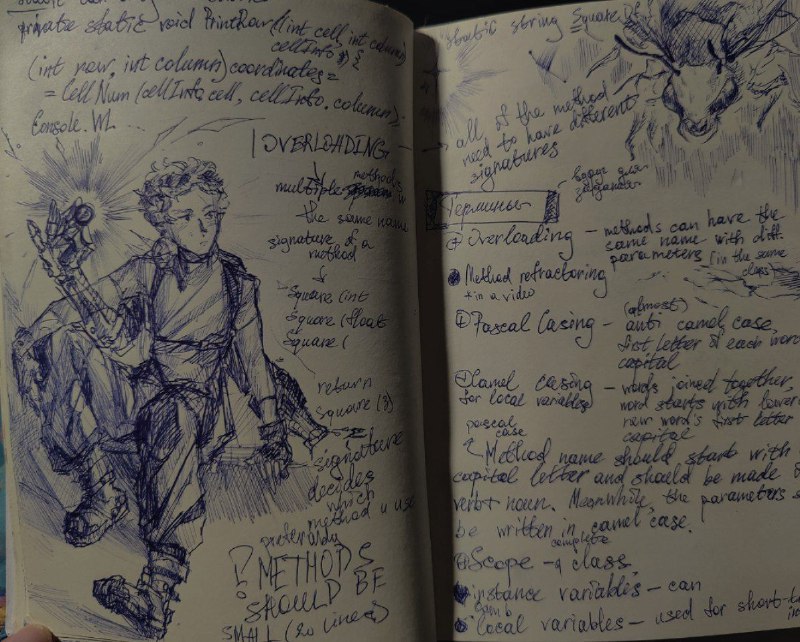 private static void PrintRow (int cell, int column)
cellInfo
(int row, int column) coordinates =
= CellNum (cellInfo.cell, cellInfo.column);
Console.WL
OVERLOADING
multiple methods w
the same name
signature of a
method
Square (int
Square (float
Square (
return
Square (3)
signature
decides
which
method u use
preferably
! METHODS
SHOULD BE
SMALL (20 lines)
static string Square
all of the method
need to have different
signatures
Термины
Overloading – methods can have the
same name with diff.
parameters (in the same
class)
Method refractoring
+ in a video
(almost)
Pascal Casing – anti camel case,
first letter of each word
capital
Camel casing – words joined together,
for local variables word starts with lower
new word's first letter
capital
pascal
case
Method name should start with
capital letter and should be made of
verb + noun. Meanwhile, the parameters
be written in camel case.
complete
Scope – class
instance variables – can
local variables – used for short-t